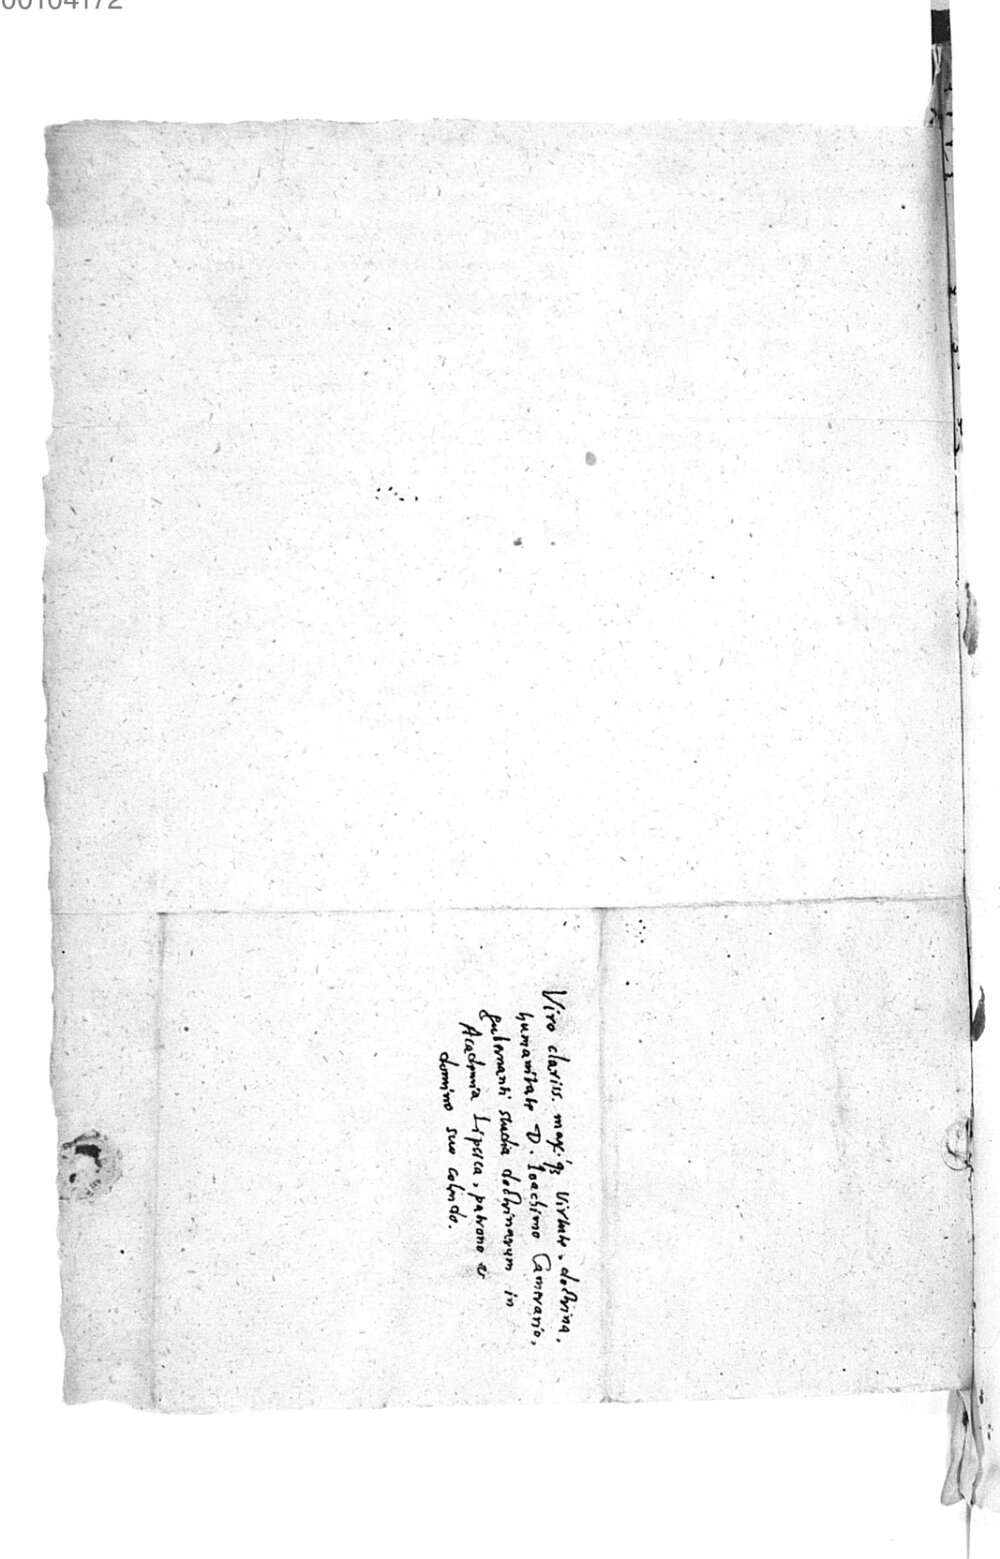 00104172
Viro clariss. maxíqȝ virtute, doctrina,
humanitate D. Ioachimo Camerario,
gubernanti studia doctrinarum in
Academia Lipsica, patrono et
domino suo colendo.